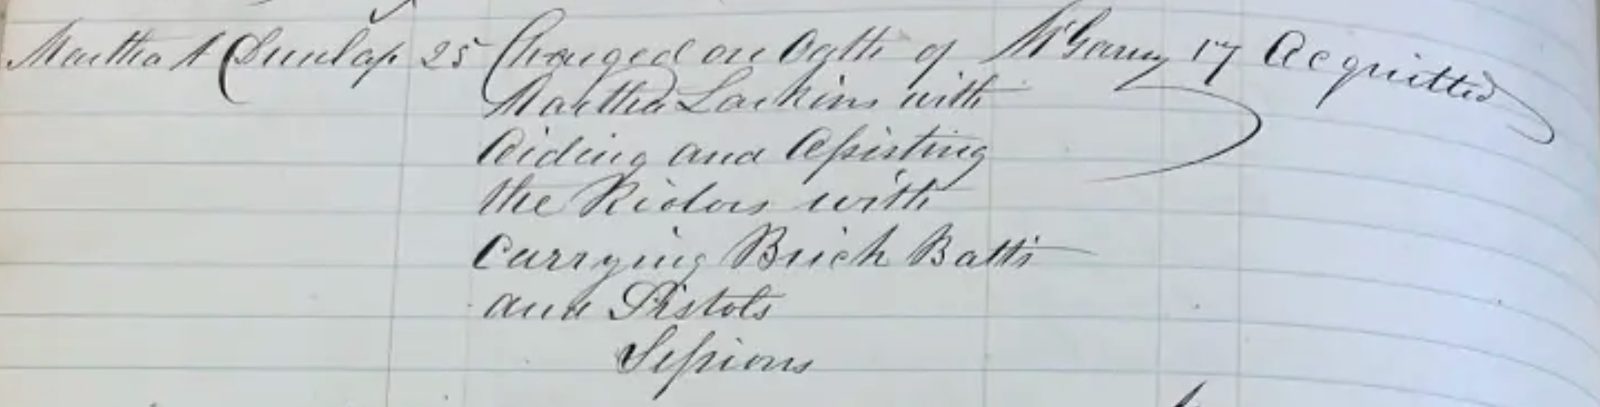 Martha A Dunlap 25 Charged on Oath of McGarry 17 Acquitted
Martha Larkins with
Aiding and Assisting
the Riotors with
Carrying Brick Batts
and Pistols
Sessions